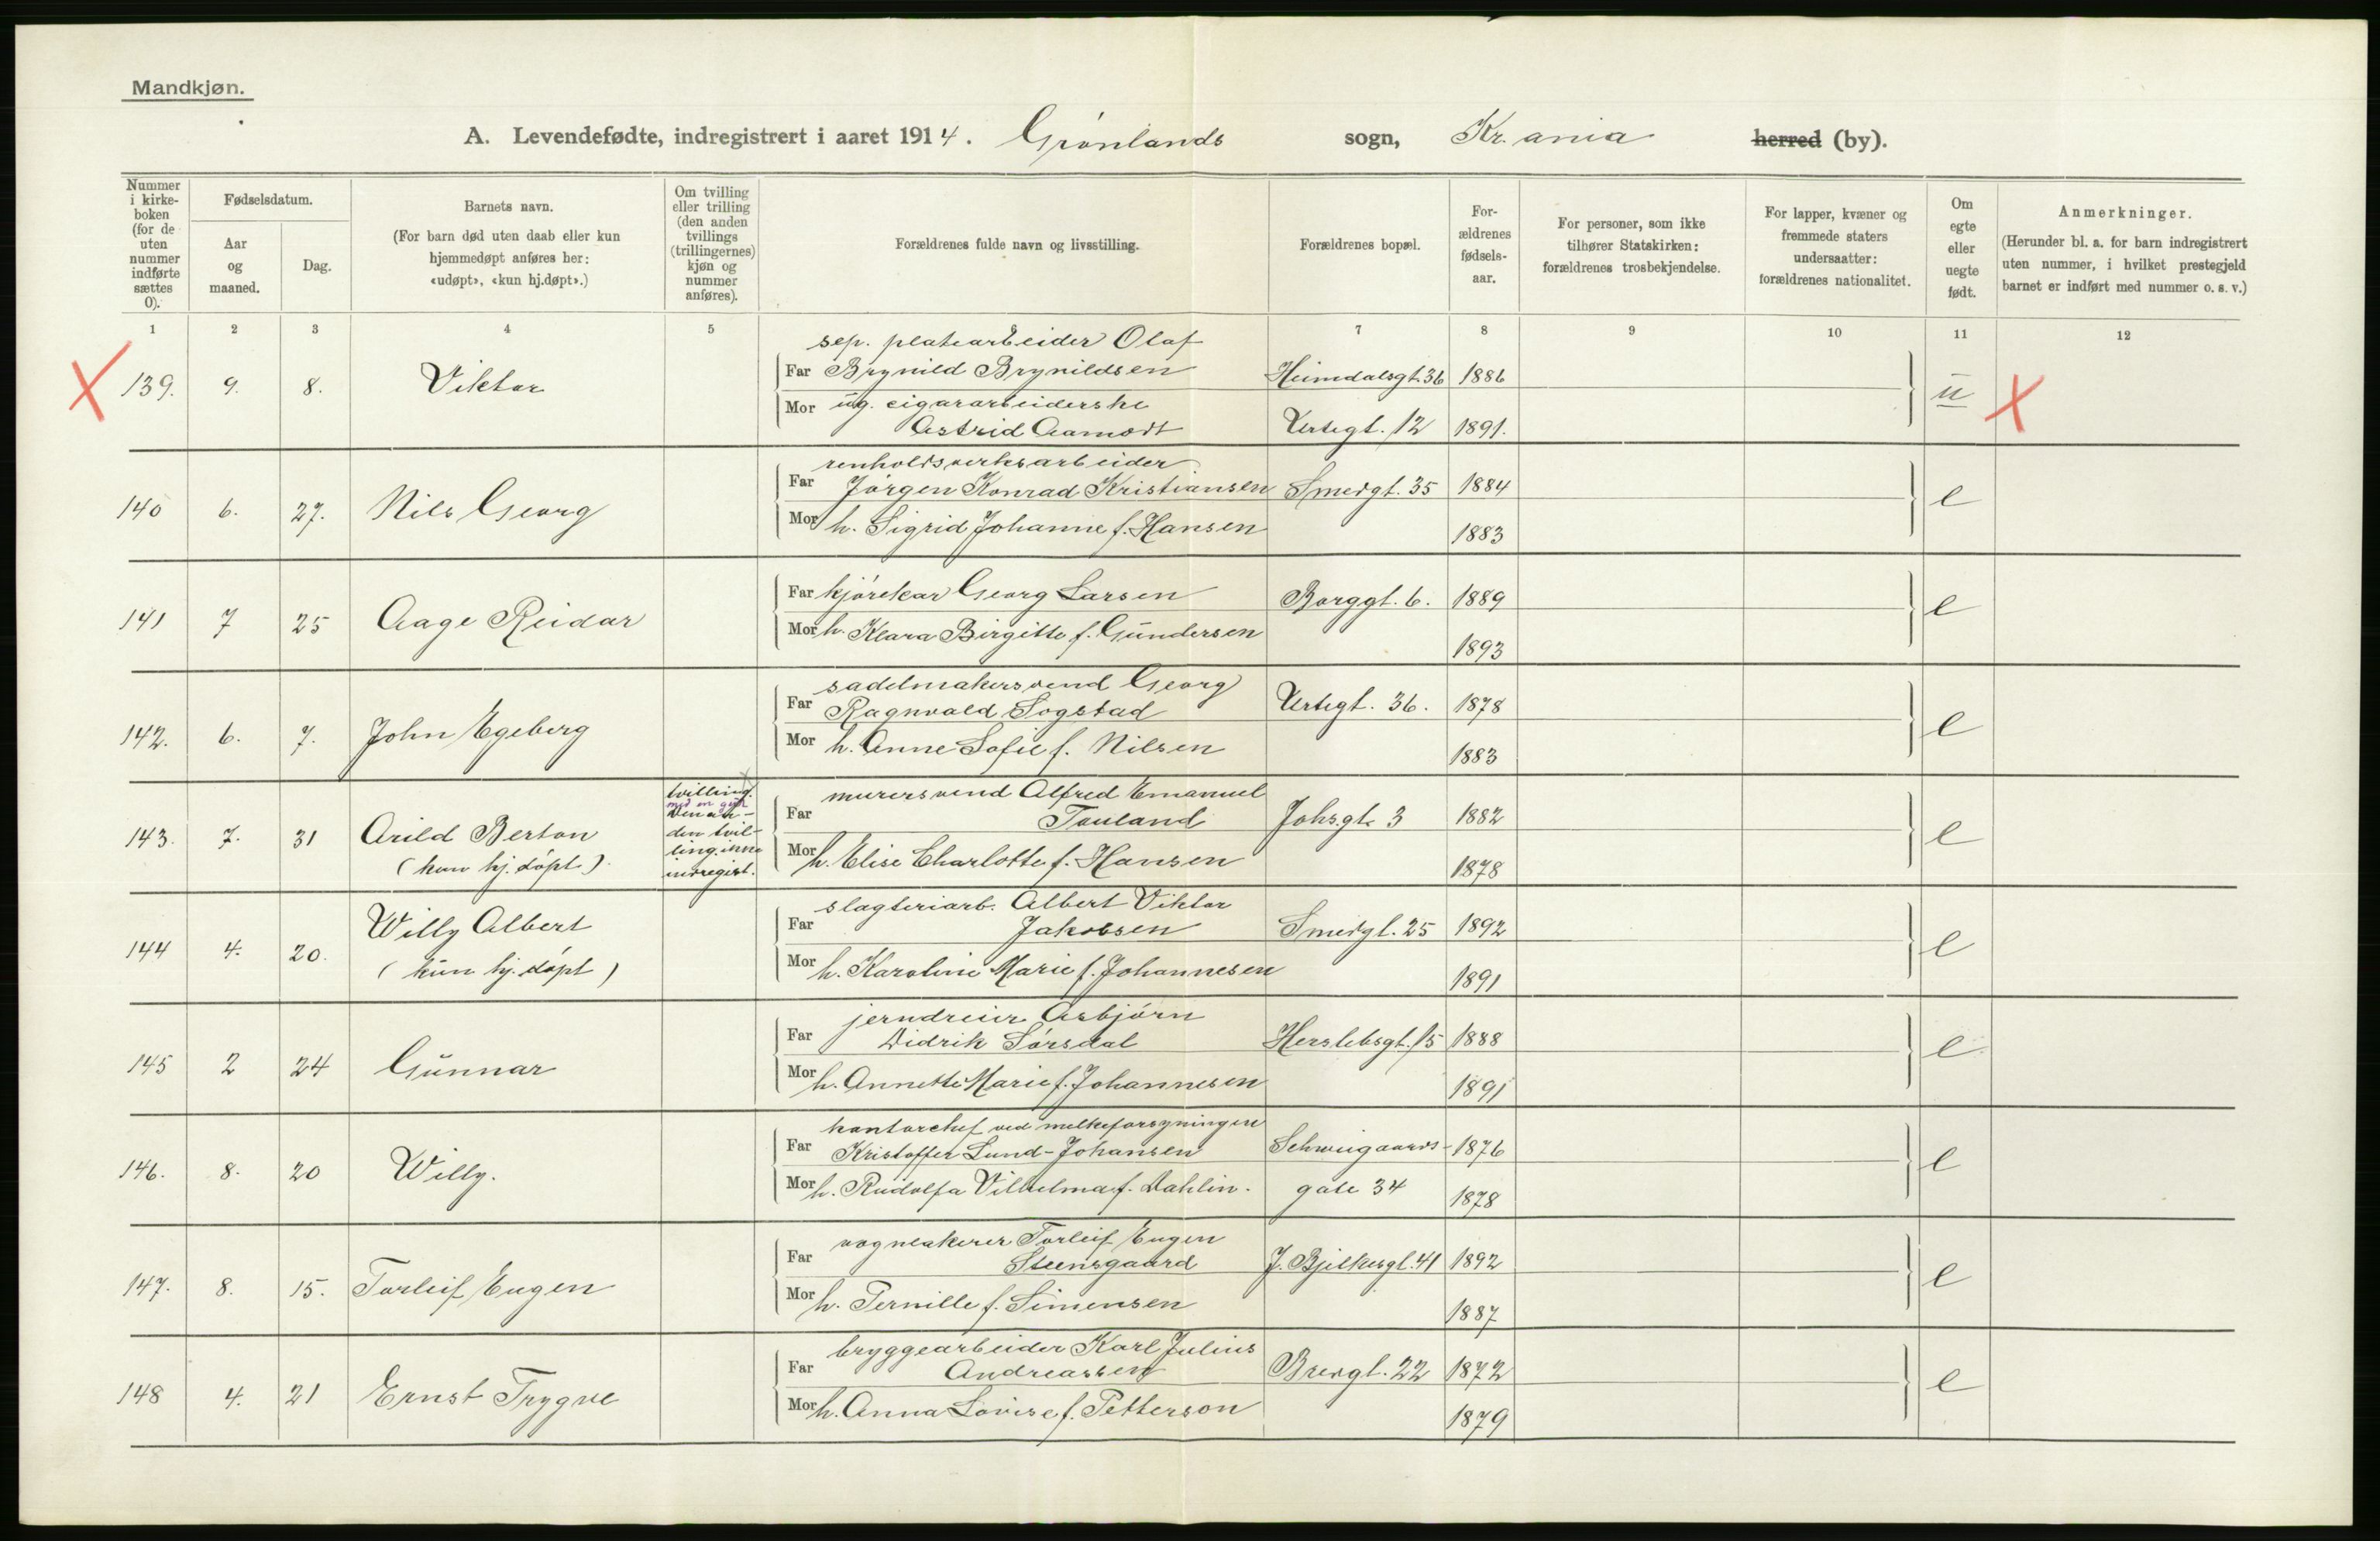 Mandkjøn.
A. Levendefødte, indregistrert i aaret 1914. Grønlands sogn, Kr.ania herred (by).
Nummer i kirkeboken (for de uten nummer indførte sættes 0).
Fødselsdatum.
Aar og maaned.
Dag.
Barnets navn.
(For barn død uten daab eller kun hjemmedøpt anføres her: «udøpt», «kun hj.døpt».)
Om tvilling eller trilling (den anden tvillings (trillingernes) kjøn og nummer anføres).
Forældrenes fulde navn og livsstilling.
Forældrenes bopæl.
Forældrenes fødselsaar.
For personer, som ikke tilhører Statskirken: forældrenes trosbekjendelse.
For lapper, kvæner og fremmede staters undersaatter: forældrenes nationalitet.
Om egte eller uegte født.
Anmerkninger.
(Herunder bl. a. for barn indregistrert uten nummer, i hvilket prestegjeld barnet er indført med nummer o. s. v.)
1 2 3 4 5 7 8 9 10 11 12
sep. platearbeider Olaf
X 139. 9. 8. Viktor Far Brynild Brynildsen Heimdalsgt. 36 1886 u X
Mor ug. cigararbeiderske
Astrid Aamodt Urtegt. 12 1891.
renholdsverksarbeider
140 6. 27. Nils Georg Far Jørgen Konrad Kristiansen Smedgt. 35 1884 e
Mor h. Sigrid Johanne f. Hansen 1883
141 7 25 Aage Reidar Far kjørekar Georg Larsen Borggt. 6. 1889 e
Mor h. Klara Birgitte f. Gundersen 1893
sadelmakersvend Georg
142. 6. 7. John Egeberg Far Ragnvald Sogstad Urtegt. 36. 1878 e
Mor h. Anne Sofie f. Nilsen 1883
tvilling.
med en gut
Den anden tvilling ikke indregist.
murersvend Alfred Emanuel
143. 7. 31 Arild Berton Far Touland Johs.gt. 3 1882 e
(kun hj. døpt) Mor h. Elise Charlotte f. Hansen 1878
slagteriarb. Albert Viktor
144 4. 20. Willy Albert Far Jakobsen Smedgt. 25 1892 e
(kun hj. døpt) Mor h. Karoline Marie f. Johannesen 1891
jerndreier Asbjørn
145 2 24 Gunnar Far Didrik Sørsdal Herslebsgt. 15 1888 e
Mor h. Annette Marie f. Johannesen 1891
kontorchef ved melkeforsyningen
146. 8. 20 Willy. Far Kristoffer Lund-Johansen Schweigaards- 1876 e
Mor h. Rudolfa Vilhelma f. Dahlin. gate 34 1878
vognlakerer Torleif Eugen
147. 8. 15. Torleif Eugen Far Steensgaard J. Bjelkesgt. 41 1892 e
Mor h. Pernille f. Simensen 1887
bryggearbeider Karl Julius
148 4. 21 Ernst Trygve Far Andreassen Bredgt. 22 1872 e
Mor h. Anna Lovise f. Petterson 1879